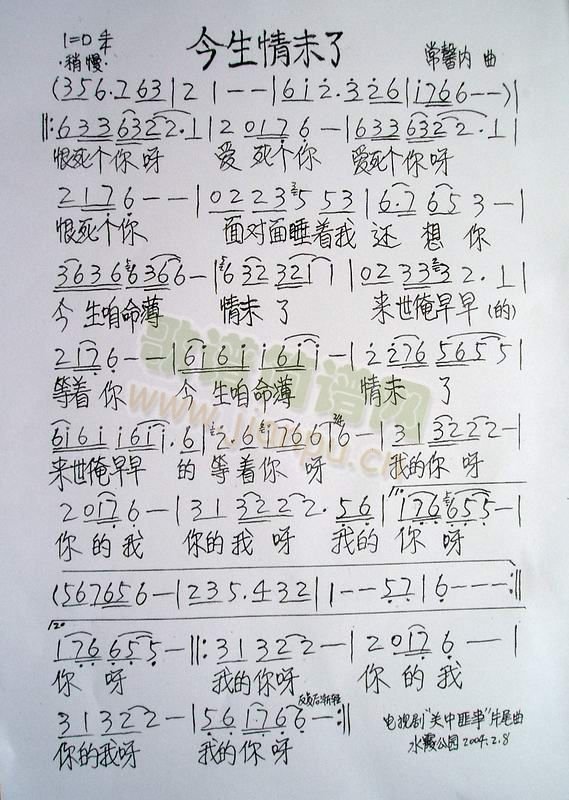 今生情未了
1=D 4/4
·稍慢·
常馨内 曲
(356.763|2 1--|612.326|1766--)|
‖:6336322.1|20176-|6336322.1|
恨死个你呀 爱死个你 爱死个你呀
2176--|02235 53|6.7 65 3-|
恨死个你 面对面睡着我 还想你
36366366-|6322321 1|0233332.1|
今生咱命薄 情未了 来世俺早早(的)
2176--|61611611-|2276 5655|
等着你 今生咱命薄 情未了
6161 1611.6|2.6 1766 6-|313222-|
来世俺早早 的等着你呀 我的你呀
20176-|31322 2.56|176655-|
你的我 你的我呀 我的你呀
(567656-|235.432|1--57|6---:‖
176655-‖:313222-|20176--|
你呀 我的你呀 你的我
313222-|561766-:‖
反复后渐轻
你的我呀 我的你呀
电视剧"关中匪事"片尾曲
水霞公园 2004.2.8
歌谱简谱网
www.jianpu.cn